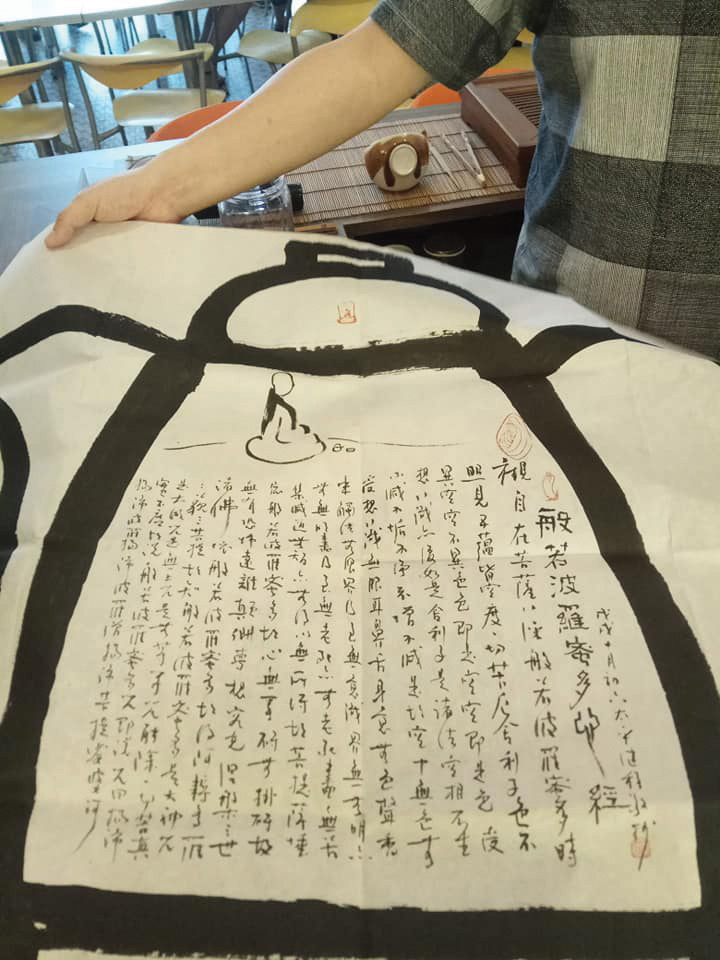 戊戌十月初六太平
般若波羅蜜多心經
觀自在菩薩行深般若波羅蜜多時
照見五蘊皆空度一切苦厄舍利子色不
異空空不異色色即是空空即是色受
想行識亦復如是舍利子是諸法空相不生
不滅不垢不淨不增不減是故空中無色无
受想行識無眼耳鼻舌身意无色聲香
味觸法无眼界乃至無意識界無无明亦
无無明盡乃至無老死亦无老死盡無苦
集滅道無智亦无得以無所得故菩提薩埵
依般若波羅蜜多故心無罣礙无掛礙故
無有恐怖遠離顛倒夢想究竟涅槃三世
諸佛依般若波羅蜜多故得阿耨多羅
三藐三菩提故知般若波羅蜜多是大神咒
是大明咒是無上咒是无等等咒能除一切苦真
實不虛故說般若波羅蜜多咒即說咒曰揭諦
揭諦波羅揭諦波羅僧揭諦菩提薩婆訶